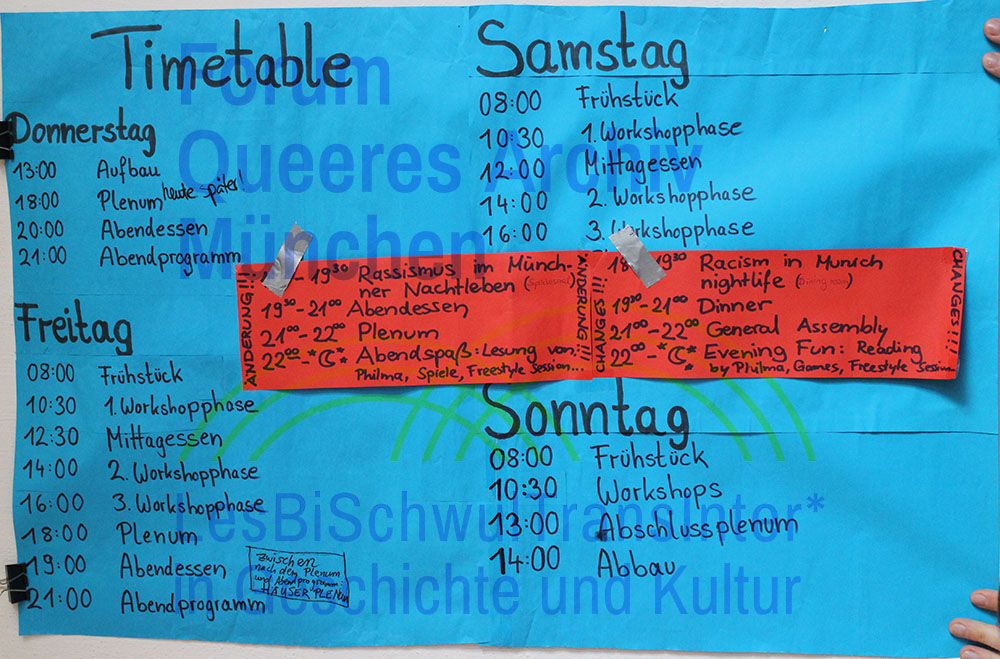 Timetable
Donnerstag
13:00 Aufbau
18:00 Plenum heute später!
20:00 Abendessen
21:00 Abendprogramm
Freitag
08:00 Frühstück
10:30 1. Workshopphase
12:30 Mittagessen
14:00 2. Workshopphase
16:00 3. Workshopphase
18:00 Plenum
19:00 Abendessen
21:00 Abendprogramm
zwischen
nach dem Plenum
und Abendprogramm:
HÄUSERPLENUM
Samstag
08:00 Frühstück
10:30 1. Workshopphase
12:00 Mittagessen
14:00 2. Workshopphase
16:00 3. Workshopphase
ÄNDERUNG!!!
- 19³⁰ Rassismus im Münch-
ner Nachtleben
19³⁰-21⁰⁰ Abendessen
21⁰⁰-22⁰⁰ Plenum
22⁰⁰-*☾* Abendspaß: Lesung von:
Philma, Spiele, Freestyle Session...
ÄNDERUNG!!!
CHANGES!!!
19³⁰ Racism in Munich
nightlife (Dining Room)
19³⁰-21⁰⁰ Dinner
21⁰⁰-22⁰⁰ General Assembly
22⁰⁰-*☾* Evening Fun: Reading
by Philma, Games, Freestyle Session...
CHANGES!!!
Sonntag
08:00 Frühstück
10:30 Workshops
13:00 Abschlussplenum
14:00 Abbau
Forum
Queeres Archiv
München
LesBiSchwulTransInter*
in Geschichte und Kultur